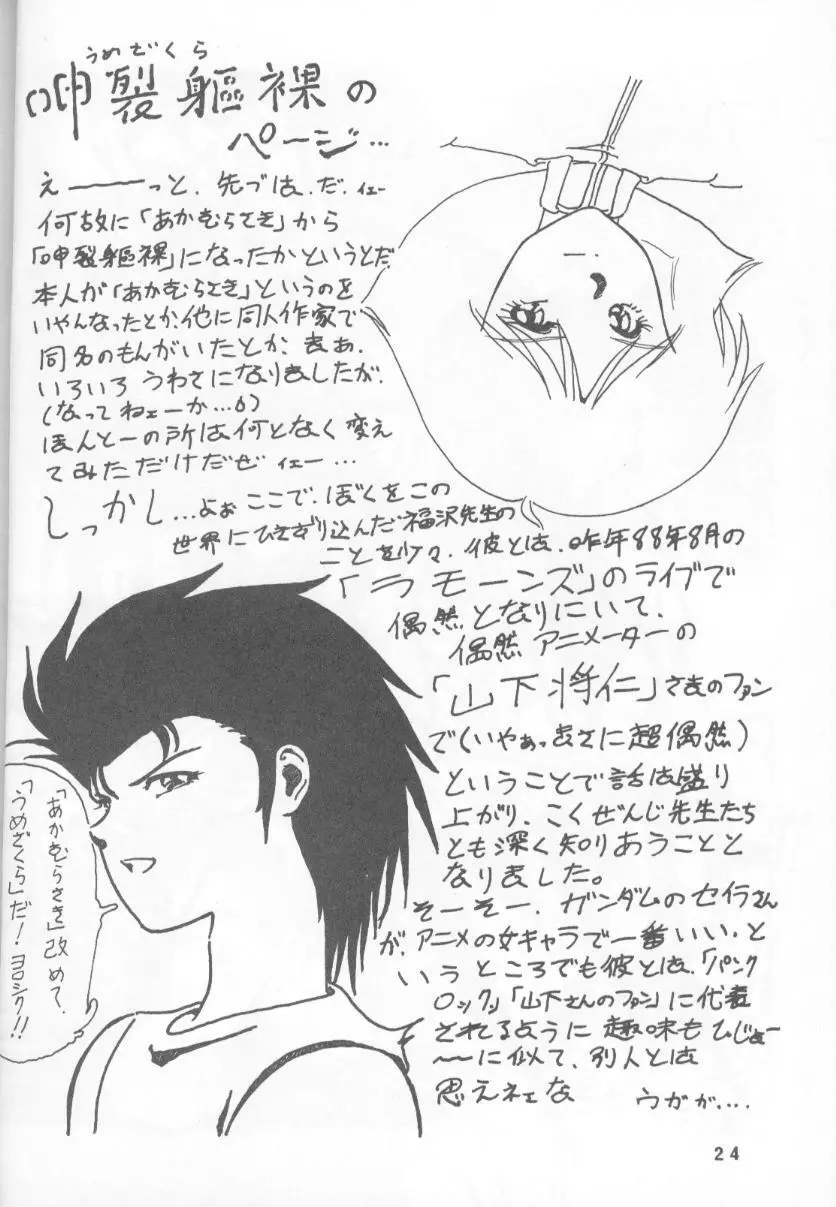 うめざくら
呻裂軀裸の
ページ…
えーーーっと、先づは、だ、イェー
何故に「あかむらさき」から
「呻裂軀裸」になったかというとだ
本人が「あかむらさき」というのを
いやんなったとか、他に同人作家で
同名のもんがいたとか、まぁ、
いろいろ うわさになりましたが、
(なってねェーか…)
ほんとーの所は何となく変え
てみただけだぜ イェー…
しっかし…よぉ ここで、ぼくをこの
世界にひきずり込んだ福沢先生の
ことを少々、彼とは、昨年88年8月の
「ラモーンズ」のライブで
偶然となりにいて、
偶然 アニメーターの
「山下将仁」さまのファン
で(いやぁっまさに超偶然)
ということで話は盛り
上がり、こくぜんじ先生たち
とも深く知りあうことと
なりました。
そーそー、ガンダムのセイラさん
が、アニメの女キャラで一番いい、と
いうところでも彼とは、「パンク
ロック」「山下さんのファン」に代表
されるように 趣味もひじょー
〜〜に似て、別人とは
思えネェな ウガガ....
「あかむらさき」改めて、
「うめざくら」だ! ヨロシク!!
24